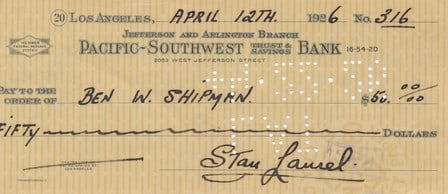 20 LOS ANGELES, APRIL 12TH. 1926 No. 316
JEFFERSON AND ARLINGTON BRANCH
PACIFIC-SOUTHWEST TRUST & SAVINGS BANK 16-54-20
2083 WEST JEFFERSON STREET
MEMBER FEDERAL RESERVE SYSTEM
PAY TO THE ORDER OF BEN W. SHIPMAN. $50. 00/00
FIFTY DOLLARS
Stan Laurel.